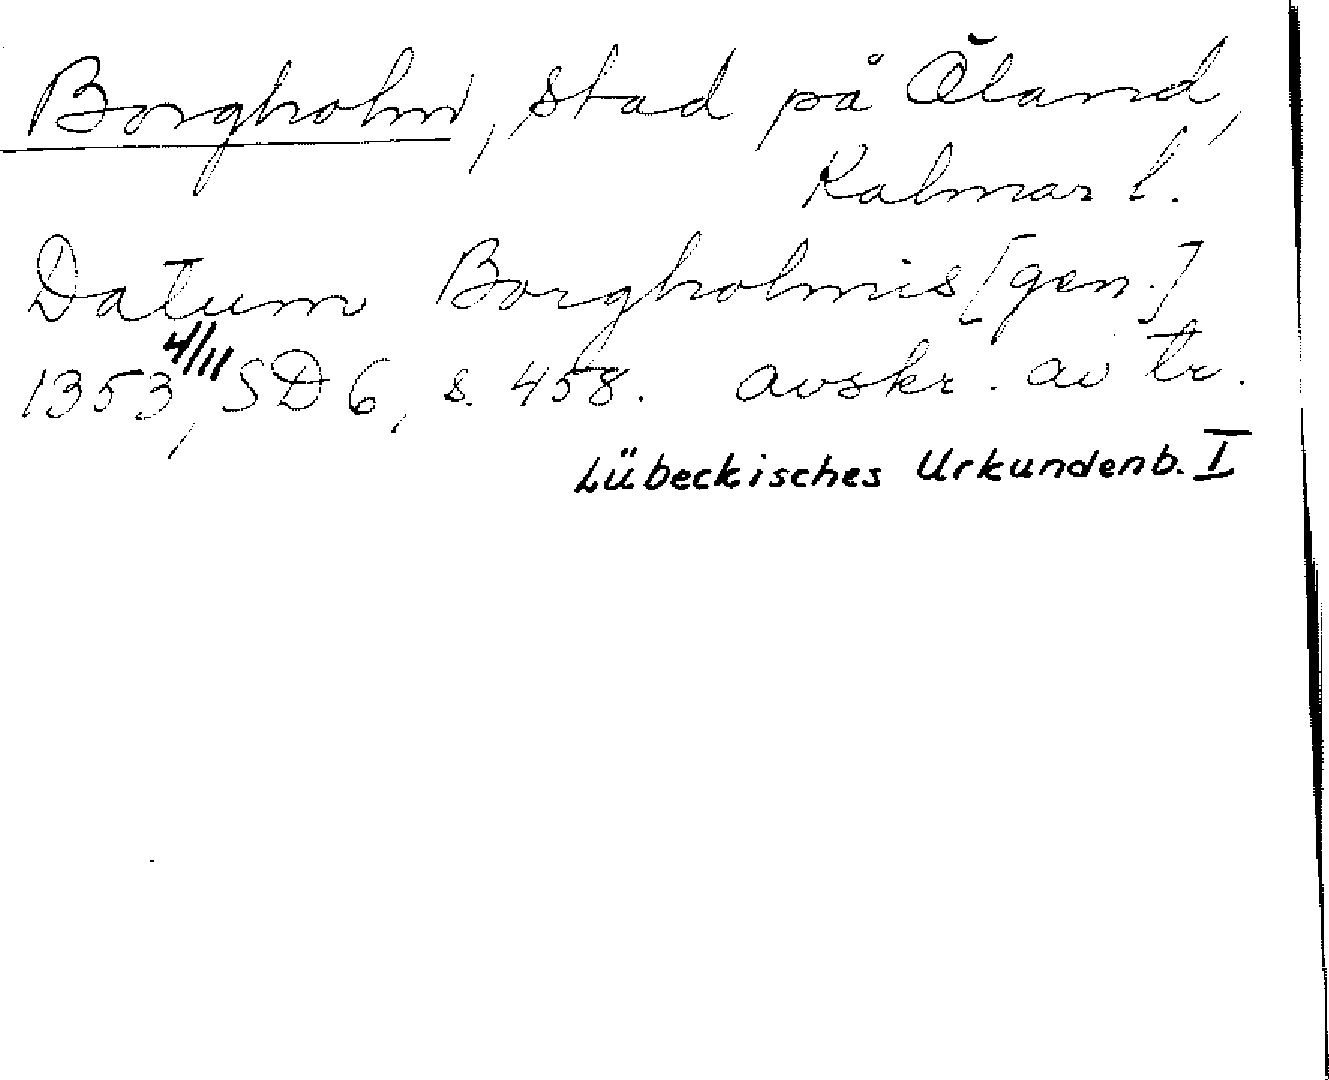 Borgholm, stad på Öland,
Kalmar l.
Datum Borgholmis [gen.]
1353 4/11, SD 6, s. 458. avskr. av tr.
Lübeckisches Urkundenb. I